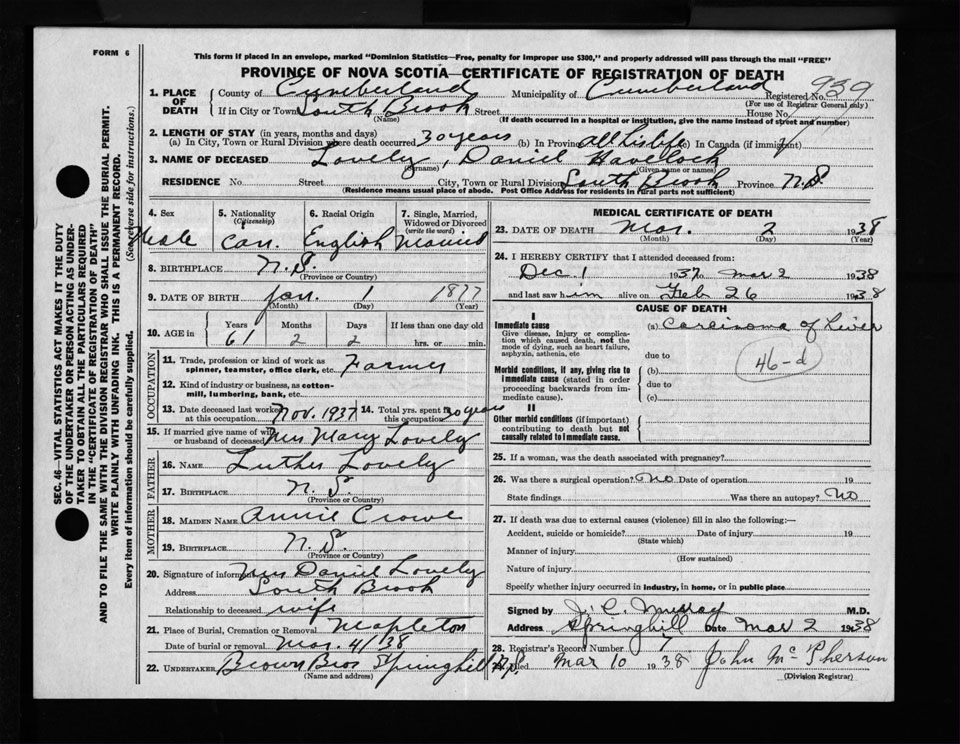 FORM 6
This form if placed in an envelope, marked "Dominion Statistics—Free, penalty for improper use $300," and properly addressed will pass through the mail "FREE"
PROVINCE OF NOVA SCOTIA—CERTIFICATE OF REGISTRATION OF DEATH
SEC. 46—VITAL STATISTICS ACT MAKES IT THE DUTY
OF THE UNDERTAKER OR PERSON ACTING AS UNDER-
TAKER TO OBTAIN ALL THE PARTICULARS REQUIRED
IN THE "CERTIFICATE OF REGISTRATION OF DEATH"
AND TO FILE THE SAME WITH THE DIVISION REGISTRAR WHO SHALL ISSUE THE BURIAL PERMIT.
WRITE PLAINLY WITH UNFADING INK. THIS IS A PERMANENT RECORD.
Every item of information should be carefully supplied. (See reverse side for instructions.)
1. PLACE OF DEATH County of Cumberland Municipality of Cumberland Registered No. 939
(For use of Registrar General only)
If in City or Town South Brook Street House No.
(Name) (If death occurred in a hospital or institution, give the name instead of street and number)
2. LENGTH OF STAY (in years, months and days)
(a) In City, Town or Rural Division where death occurred 30 years (b) In Province all his life In Canada (if immigrant)
3. NAME OF DECEASED Lovely, Daniel Havelock
(Surname) (Given name or names)
RESIDENCE No. Street City, Town or Rural Division South Brook Province N.S.
(Residence means usual place of abode. Post Office Address for residents in rural parts not sufficient)
4. Sex Male
5. Nationality (Citizenship) Can.
6. Racial Origin English
7. Single, Married, Widowed or Divorced (write the word) Married
8. BIRTHPLACE N.S.
(Province or Country)
9. DATE OF BIRTH Jan. 1 1877
(Month) (Day) (Year)
10. AGE in Years 61 Months 2 Days 2 If less than one day old hrs. or min.
OCCUPATION
11. Trade, profession or kind of work as spinner, teamster, office clerk, etc. Farmer
12. Kind of industry or business, as cotton-mill, lumbering, bank, etc.
13. Date deceased last worked at this occupation Nov. 1937 14. Total yrs. spent in this occupation 30 years
15. If married give name of wife or husband of deceased Mrs Mary Lovely
FATHER
16. Name Luther Lovely
17. Birthplace N.S.
(Province or Country)
MOTHER
18. MAIDEN NAME Annie Crowe
19. BIRTHPLACE N.S.
(Province or Country)
20. Signature of informant Mrs Daniel Lovely
Address South Brook
Relationship to deceased wife
21. Place of Burial, Cremation or Removal Mapleton
Date of burial or removal Mar. 4/38
22. UNDERTAKER Brown Bros Springhill N.S.
(Name and address)
MEDICAL CERTIFICATE OF DEATH
23. DATE OF DEATH Mar. 2 1938
(Month) (Day) (Year)
24. I HEREBY CERTIFY that I attended deceased from:
Dec 1 1937 to Mar 2 1938
and last saw him alive on Feb 26 1938
CAUSE OF DEATH
I
Immediate cause (a) Carcinoma of Liver
Give disease, injury or complication which caused death, not the mode of dying, such as heart failure, asphyxia, asthenia, etc
due to
46-d
Morbid conditions, if any, giving rise to immediate cause (stated in order proceeding backwards from immediate cause).
(b)
due to
(c)
II
Other morbid conditions (if important) contributing to death but not causally related to immediate cause.
25. If a woman, was the death associated with pregnancy?
26. Was there a surgical operation? No Date of operation 19
State findings Was there an autopsy? No
27. If death was due to external causes (violence) fill in also the following:—
Accident, suicide or homicide? Date of injury 19
(State which)
Manner of injury
(How sustained)
Nature of injury
Specify whether injury occurred in industry, in home, or in public place
Signed by J. C. Murray M.D.
Address Springhill Date Mar 2 1938
28. Registrar's Record Number 7
Filed Mar 10 1938 John McPherson
(Division Registrar)